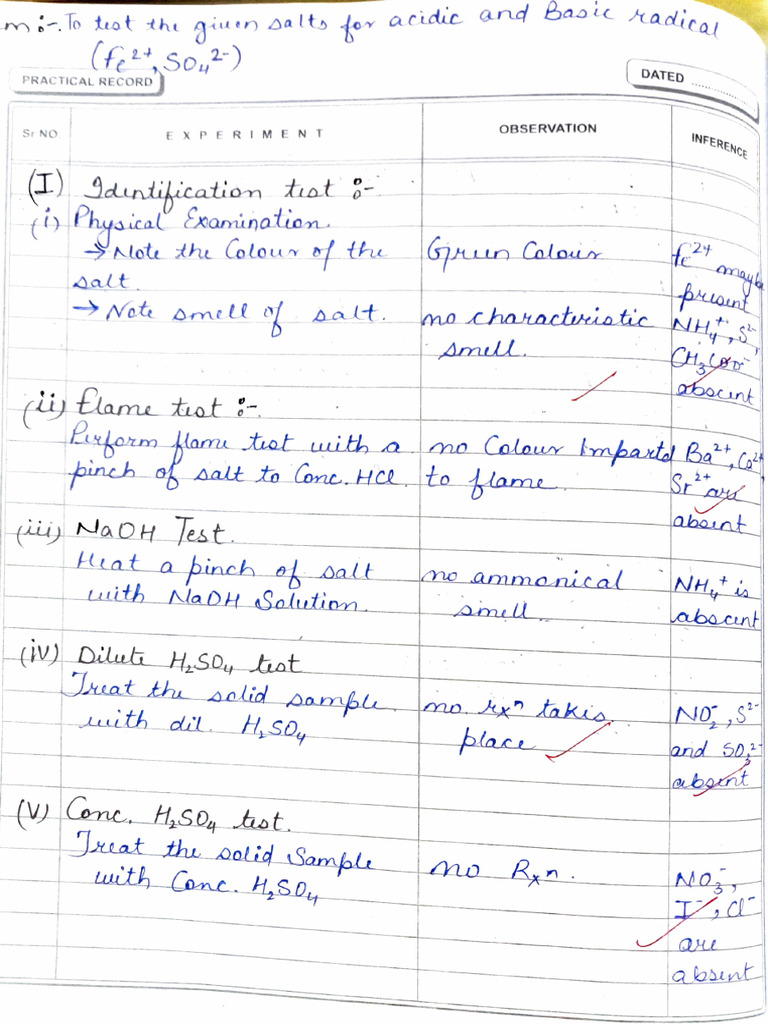 m :-. To test the given salts for acidic and Basic radical
(Fe2+, SO4 2-)
PRACTICAL RECORD
DATED
Sr NO
EXPERIMENT
OBSERVATION
INFERENCE
(I) Identification test :-
(i) Physical Examination.
→ Note the Colour of the
salt.
Green Colour
Fe2+ maybe
present
→ Note smell of salt.
no characteristic
smell.
NH4+, S2-,
CH3COO-
abscent
(ii) flame test :-.
Perform flame test with a
pinch of salt to Conc. HCl.
no Colour Impartd
to flame.
Ba2+, Ca2+,
Sr2+ are
absent
(iii) NaOH Test.
Heat a pinch of salt
with NaOH Solution.
no ammonical
smell.
NH4+ is
abscent
(iv) Dilute H2SO4 test
Treat the solid sample
with dil. H2SO4
no rxn takes
place
NO2-, S2-
and SO3 2-
absent
(V) Conc. H2SO4 test.
Treat the solid Sample
with Conc. H2SO4
no Rxn.
NO3-,
I-, Cl-
are
absent